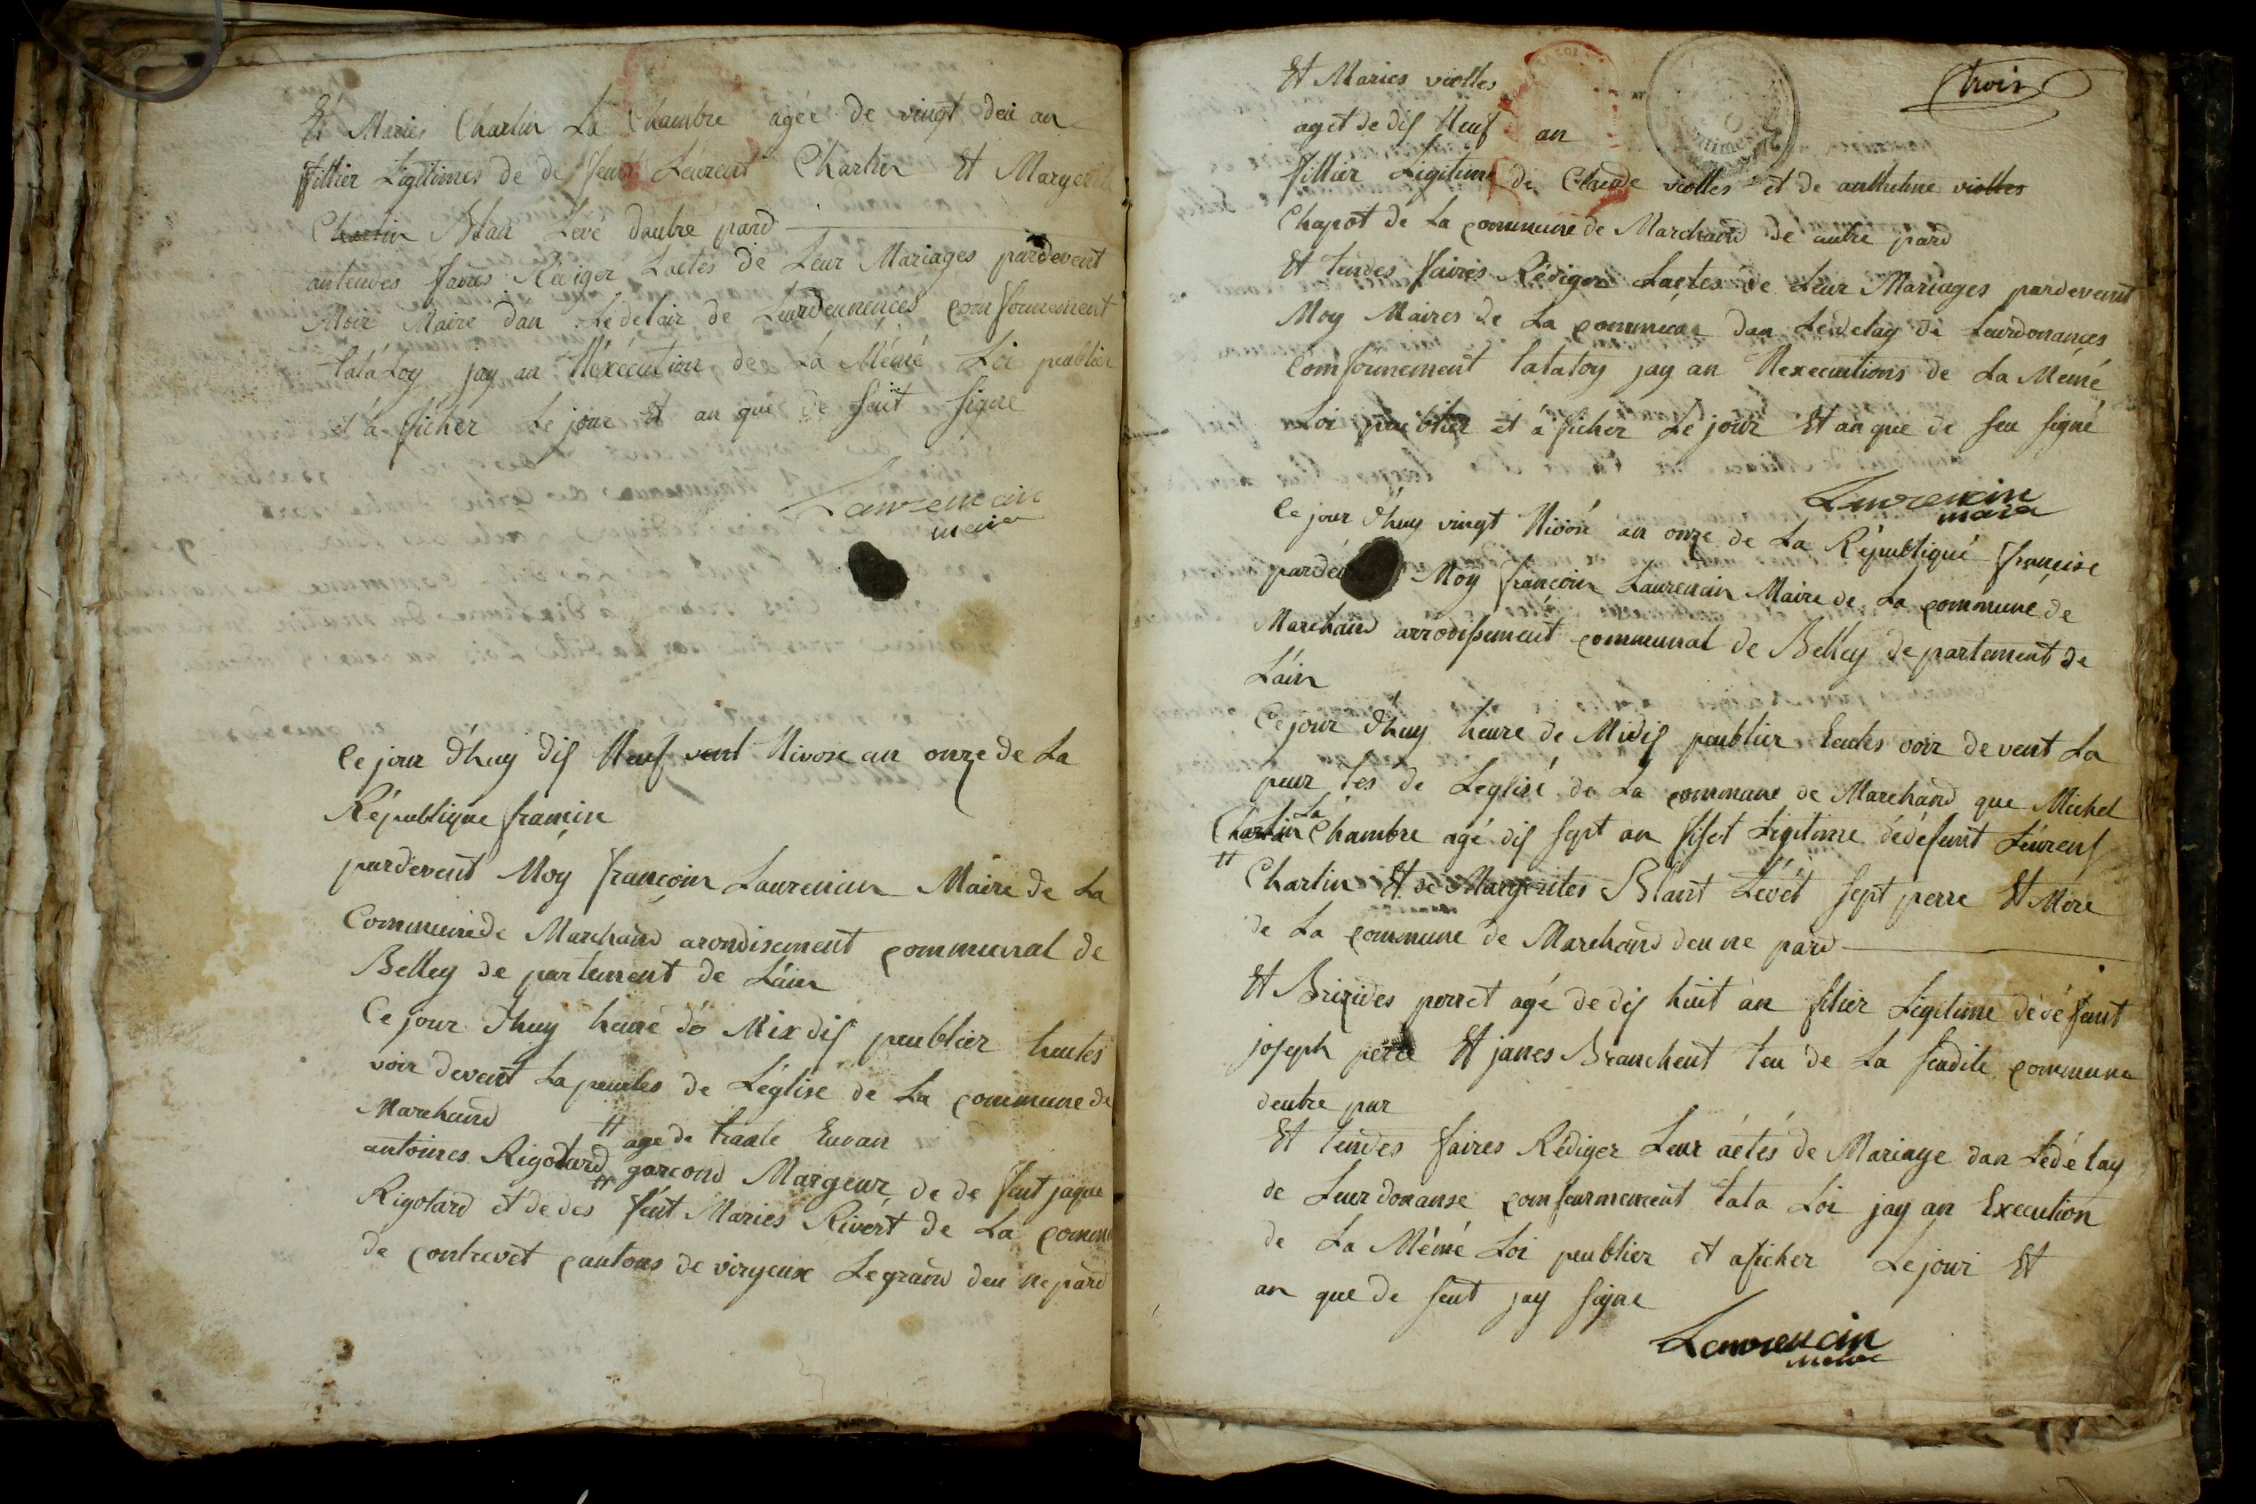 Et Maries Charlin La Chambre agée de vingt deu an
fillier Legitimes de de feut Leurent Charlin Et Margerite
Charlin Blan Levé dautre pard
antendes faires Rédiger Lactes de Leur Mariages pardevent
Moir Maire dan Ledelair de Leurdennences comfournement
tatáLoy jay an Léxécution de La Mémé Loi peublier
et á ficher Le jour Et an que de feut signe
Laurencin
maire
Ce jour d'huy dis Neuf vent Nivose an onze de La
République francin
pardevent Moy françoin Laurencin Maire de La
Commune de Marchand arondisement communal de
Belley de partement de Láin
Ce jour d'huy heure dé Mixdis peublier hautes
voir devent La peurtes de Léglise de La commune de
Marchand
H age de trante Euvan
antoines Rigotard H garcond Margeur de de feut jaque
Rigotard et de des feut Maries Rivért de La comm
de contrevet cantons de viryeux Le grand deu ne pard
trois
Et Maries violles
aget de dis Neuf an
fillier Ligitime de Claude violles et de anthelme violles
Chapot de La commune de Marchand de autre pard
Et tendes faires Rédiger Lactes de Leur Mariages pardevent
Moy Maires de La commune dan Ledelay de Leurdonances
Comfournement tataloy jay an Nexecutions de La Mémé
Loi peublier et á ficher Le jour Et an que de feu signé
Laurencin
maire
Ce jour d'huy vingt Nivosé an onze de La Républiqué françise
pardev Moy françoin Laurencin Maire de La commune de
Marchand arrodissement communal de Belley departement de
Láin
Ce jour d'huy heure de Midis peublier hautes voir devent La
peur tes de Leglisé de La commune de Marchand que Michel
Charlin La Chambre agé dis sept an fiset Ligitime dedéfunt Léurens
H Charlin Et de Margerites Blant Levét sept perre Et Mére
de La commune de Marchand deu ne pard
Et Brizides perret agé de dis huit an filier Ligitime dedéfunt
joseph perre Et janes Branchent teu de La sudite commune
deutre par
Et tendes faires Rédiger Leur áctés de Mariage dan Ledélay
de Leurdonanse comfeurmement tata Loi jay an Execution
de La Mémé Loi peublier et aficher Le jour Et
an que de feut jay signe
Laurencin
maire